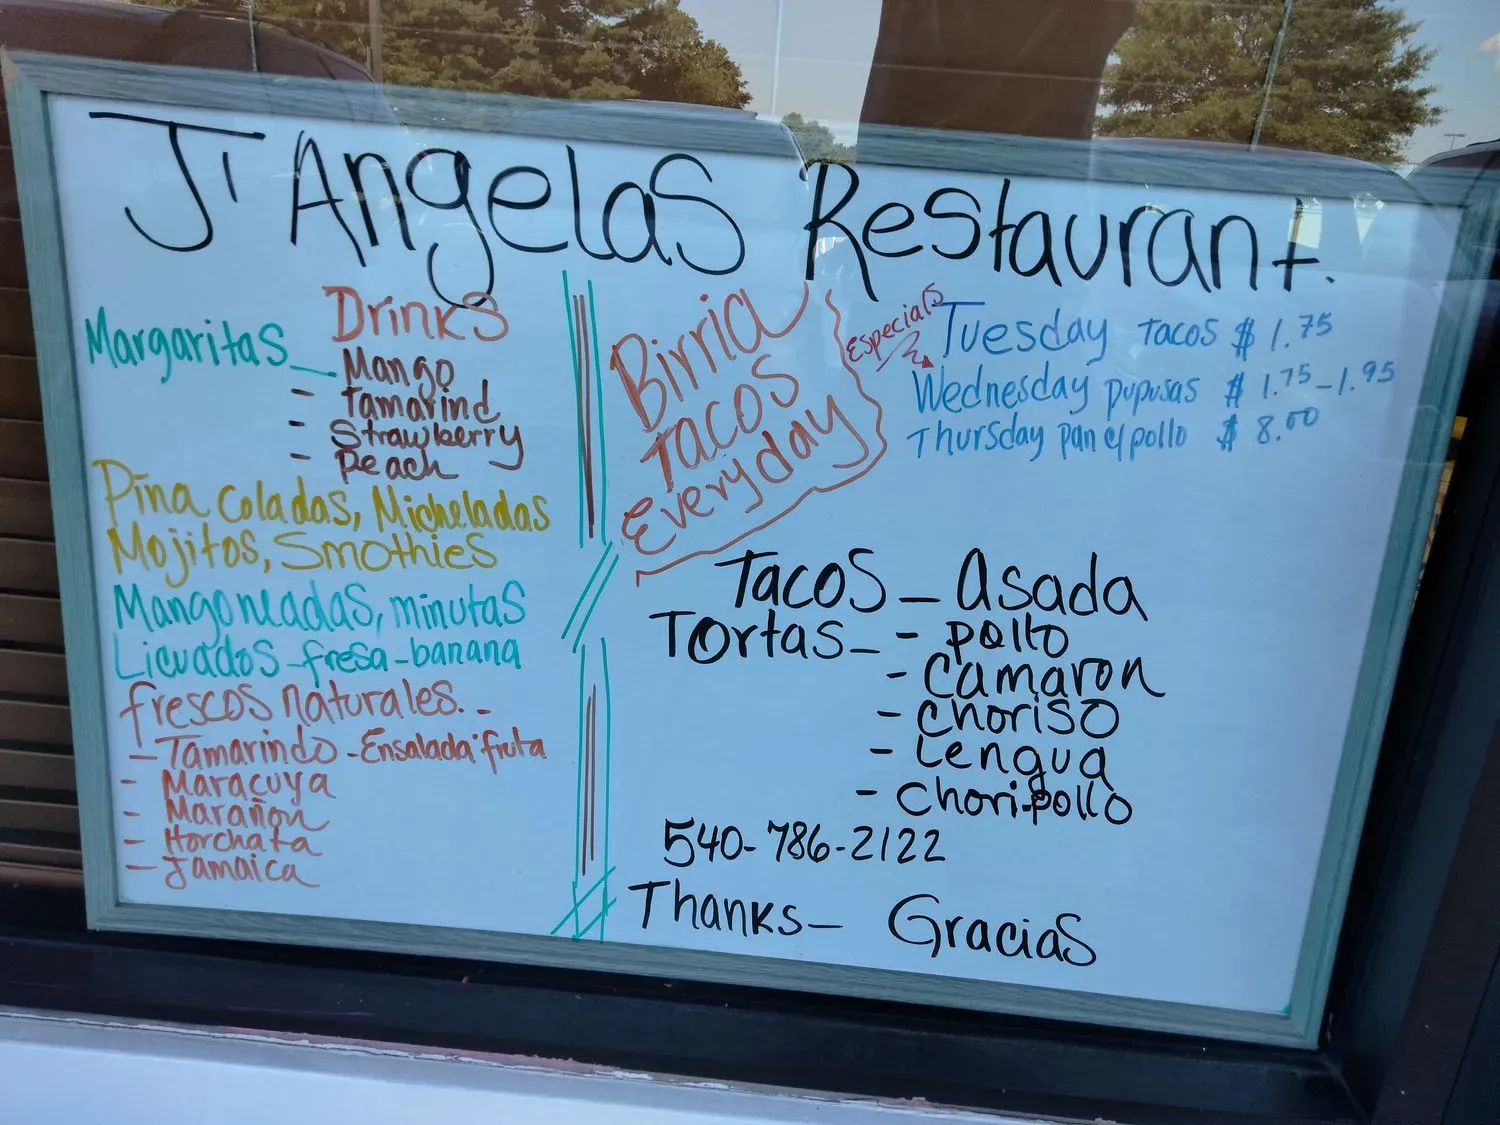 J' Angelas Restaurant.
Drinks
Margaritas - Mango
- Tamarind
- Strawberry
- Peach
Pina coladas, Micheladas
Mojitos, Smothies
Mangoneadas, minutas
Licuados - fresa - banana
frescos naturales. -
- Tamarindo - Ensalada fruta
- Maracuya
- Marañon
- Horchata
- Jamaica
Birria
Tacos
Everyday
Especials
Tuesday Tacos $ 1.75
Wednesday pupusas $ 1.75 - 1.95
Thursday pan c/pollo $ 8.00
Tacos - Asada
Tortas - - pollo
- Camaron
- Choriso
- Lengua
- Choripollo
540-786-2122
Thanks - Gracias